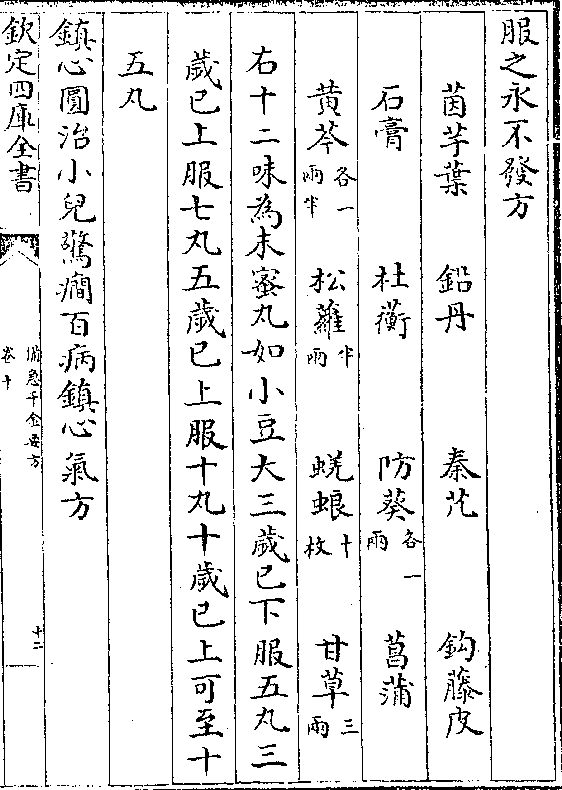 服之永不發方
茵芋葉 鉛丹 秦艽 鈎藤皮
石膏 杜蘅 防葵各一兩 菖蒲
黃芩各一兩半 松蘿半兩 蜣蜋十枚 甘草三兩
右十二味為末蜜丸如小豆大三歲已下服五丸三
歲已上服七丸五歲已上服十丸十歲已上可至十
五丸
鎮心圓治小兒驚癇百病鎮心氣方
欽定四庫全書
備急千金要方
卷十
十二